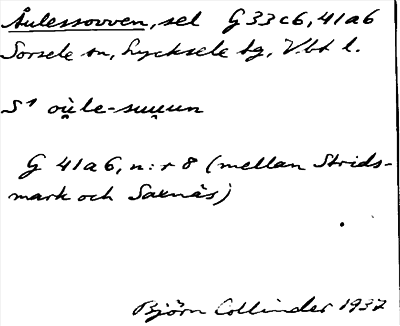 Åulessovven, sel G 33 c 6, 41 a 6
Sorsele sn, Lycksele tg, V.bt l.
S¹ où̯le-suu̯un
G 41 a 6, n:r 8 (mellan Strids-
mark och Saxnäs)
Björn Collinder 1937